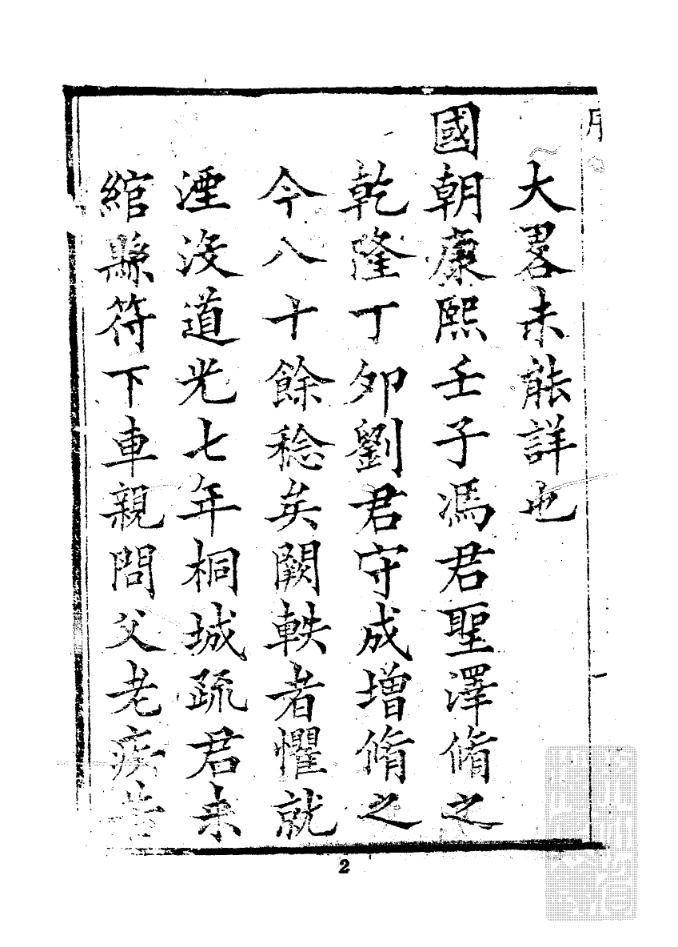 大畧未能詳也
國朝康熙壬子馮君聖澤脩之
乾隆丁夘劉君守成增脩之
今八十餘稔矣闕軼者懼就
湮沒道光七年桐城疏君来
綰縣符下車親問父老疾苦
2